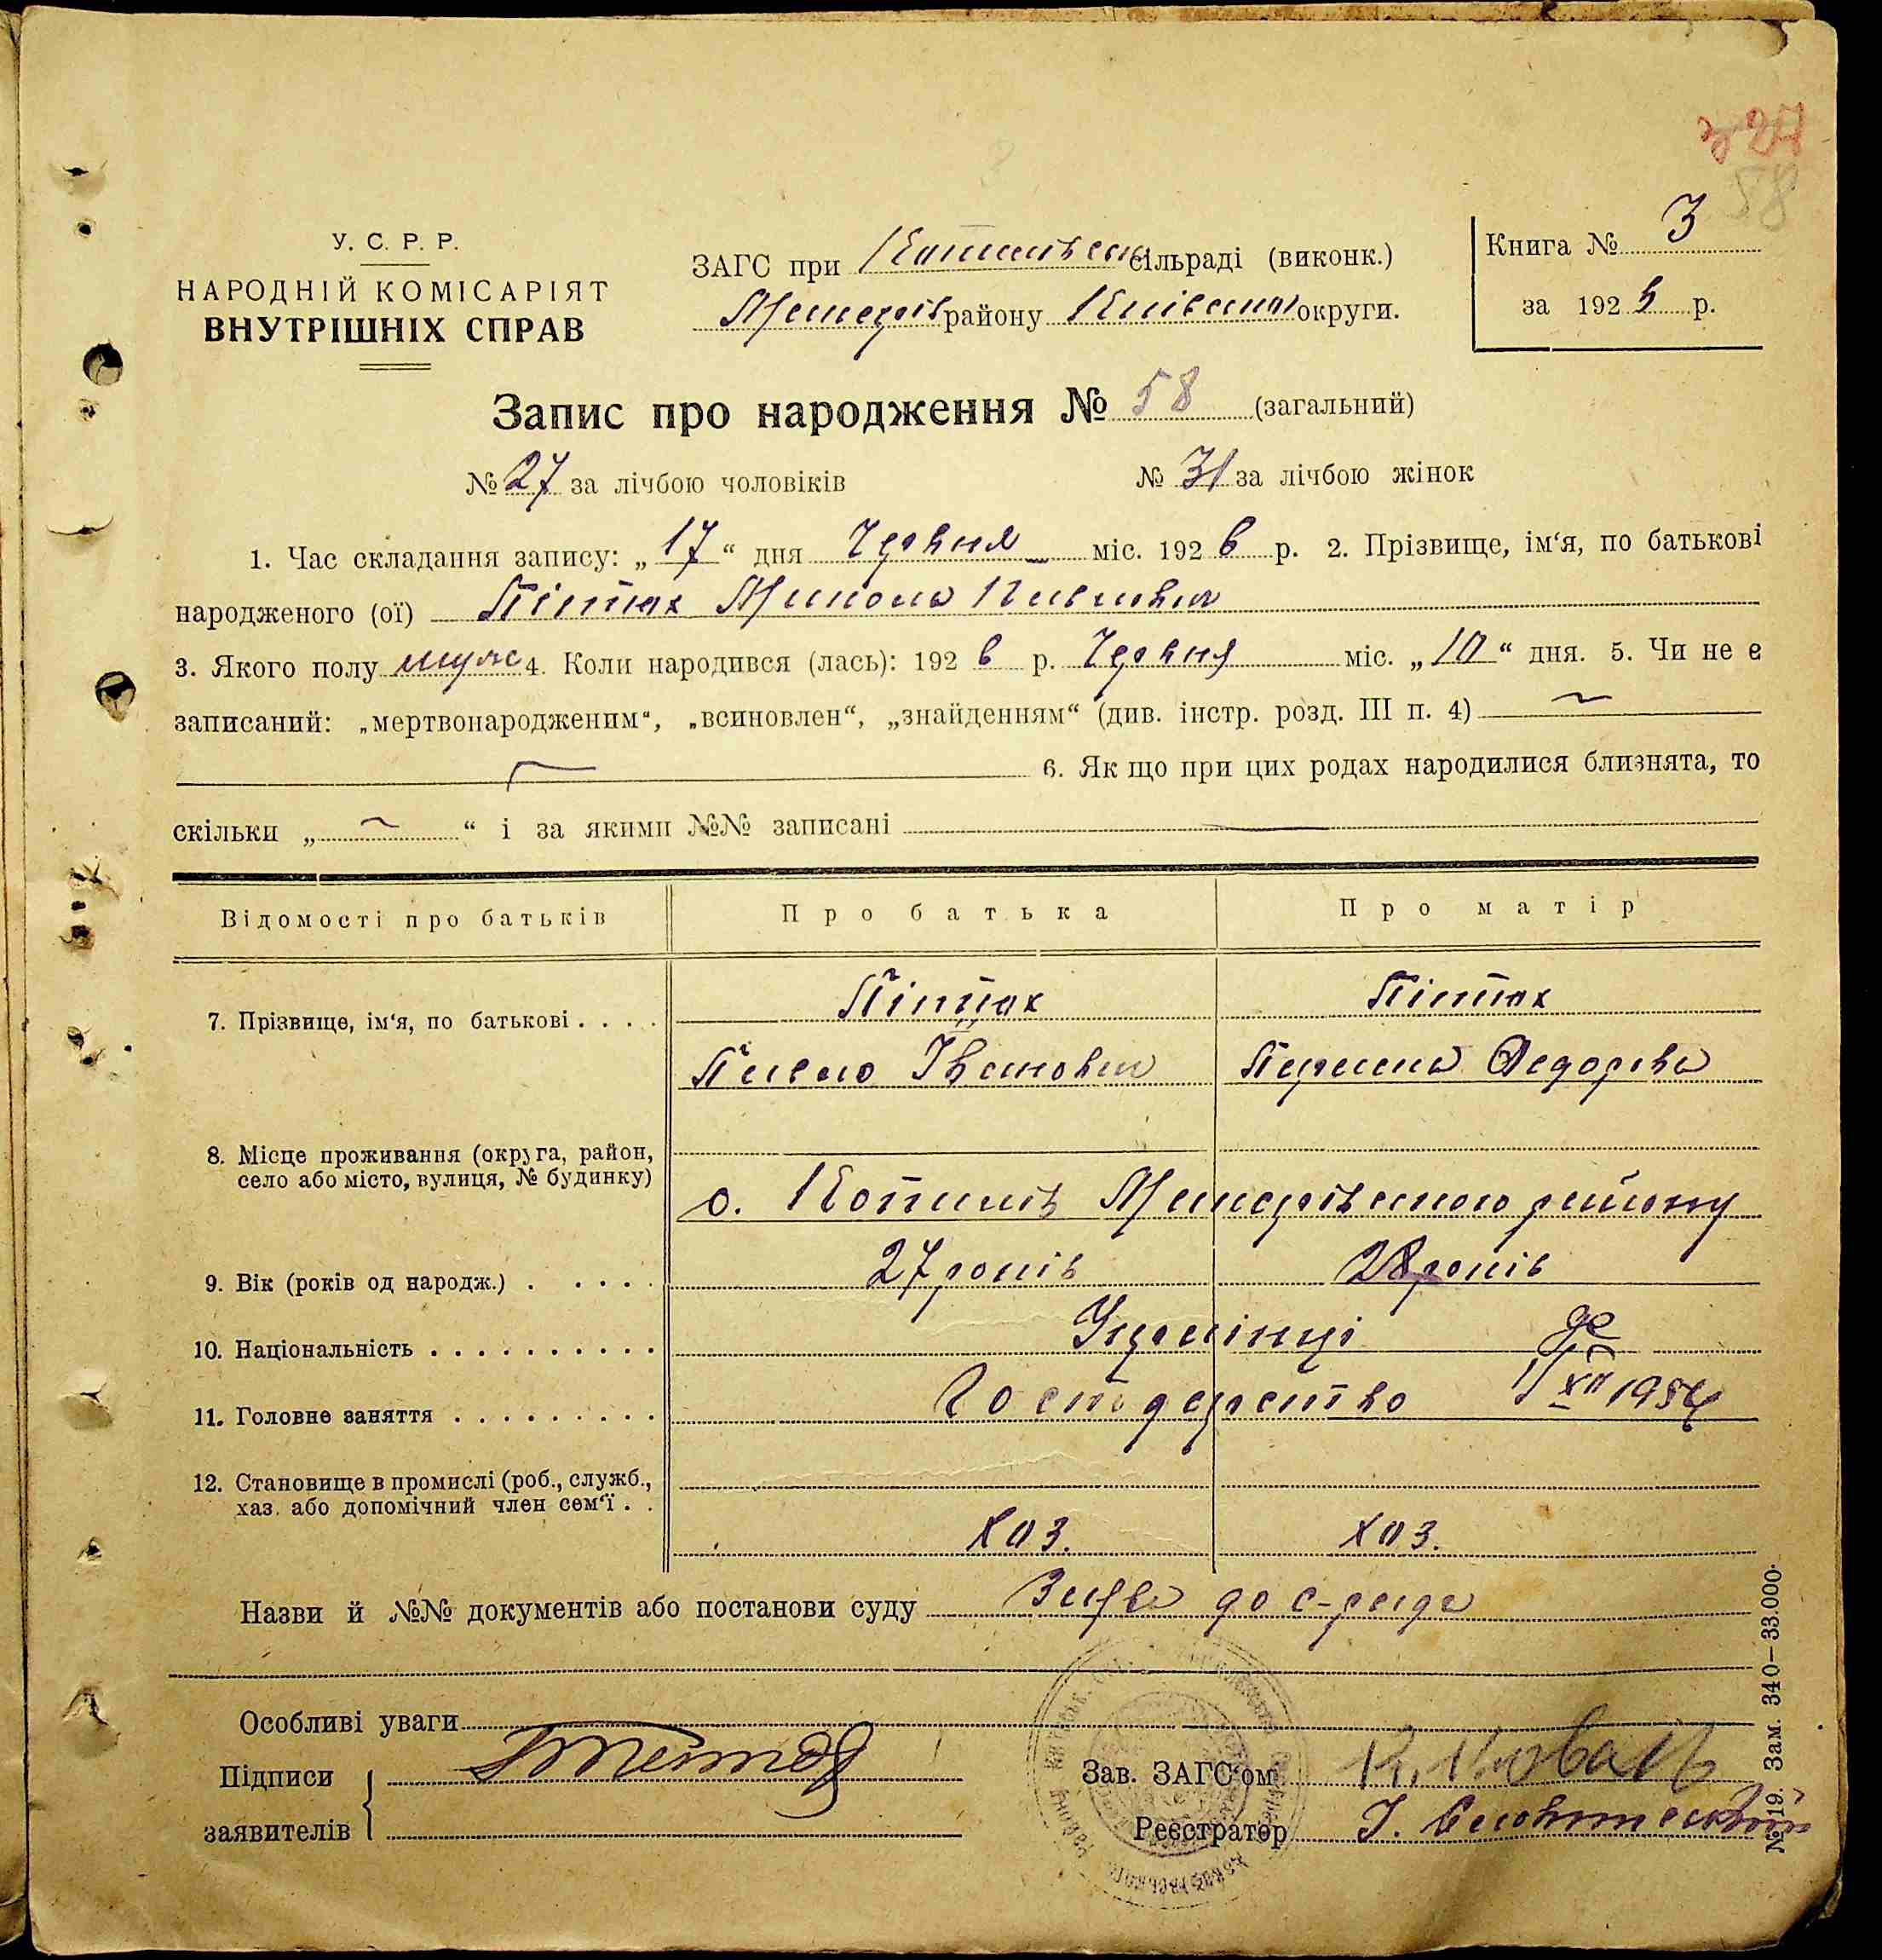 58
У. С. Р. Р.
НАРОДНІЙ КОМІСАРІЯТ
ВНУТРІШНІХ СПРАВ
ЗАГС при Копилівськ сільраді (виконк.)
Макарів району Київської округи.
Книга № 3
за 1926 р.
Запис про народження № 58 (загальний)
№ 27 за лічбою чоловіків
№ 31 за лічбою жінок
1. Час складання запису: „17“ дня Червня міс. 1926 р. 2. Прізвище, ім‘я, по батькові
народженого (ої) Пінтах Микола Павлович
3. Якого полу муж 4. Коли народився (лась): 1926 р. Червня міс. „10“ дня. 5. Чи не є
записаний: „мертвонародженим“, „всиновлен“, „знайденням“ (див. інстр. розд. III п. 4)
6. Як що при цих родах народилися близнята, то
скільки „ “ і за якими №№ записані
Відомості про батьків
Про батька
Про матір
7. Прізвище, ім‘я, по батькові . . . .
Пінтах
Пінтах
Павло Іванович
Федоровна
8. Місце проживання (округа, район,
село або місто, вулиця, № будинку)
с. Копилів Макарівського району
9. Вік (років од народж.) . . . . .
27 років
28 років
10. Національність . . . . . . . . . .
Українці
11. Головне заняття . . . . . . . . .
Господарство
XII 1954
12. Становище в промислі (роб., служб.,
хаз. або допомічний член сем‘ї . .
хоз.
хоз.
Назви й №№ документів або постанови суду Заява до с-ради
Особливі уваги
Підписи
заявителів
Зав. ЗАГС‘ом
Реєстратор І.
№ 19. Зам. 340—33.000.